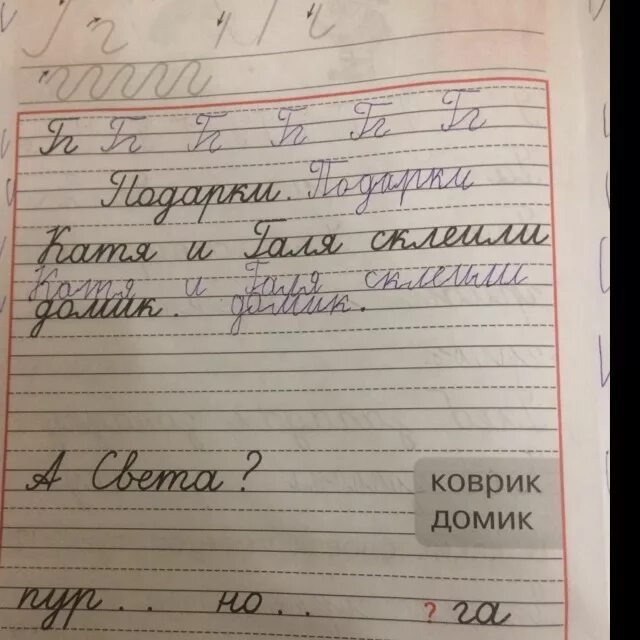 Гг Гг Гг Гг Гг Гг
Подарки. Подарки
Катя и Галя склеили
Катя и Галя склеили
домик. домик.
А Света?
коврик
домик
пур.. но.. ?га